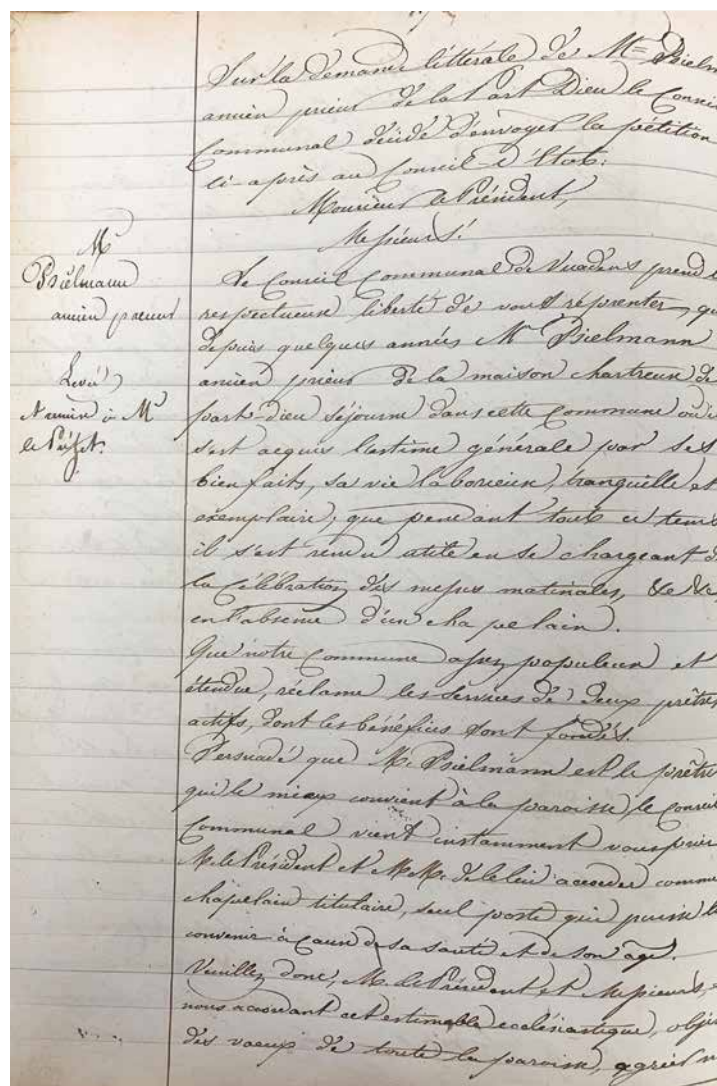 Sur la demande littérale de Mr Bielm
ancien prieur de la Part Dieu le Conseil
Communal décide d'envoyer la pétition
ci-après au Conseil d'Etat:
Monsieur le Président,
Messieurs!
Mr
Bielmann
ancien prieur
Levé
Remise à Mr
le Préfet.
Le Conseil Communal de Vuadens prend l
respectueuse liberté de vous réprésenter, que
depuis quelques années Mr Bielmann
ancien prieur de la maison chartreuse de
part-dieu séjourne dans cette commune où i
s'est acquis l'estime générale par ses
bienfaits, sa vie laborieuse, tranquille et
exemplaire; que pendant tout ce tems
il s'est rendu utile en se chargeant d
la célébration des messes matinales, &c &c
en l'absence d'un chapelain.
Que notre Commune assez populeuse et
étendue, réclame les services de deux prêtres
actifs, dont les bénéfices sont fondés.
Persuadé que M. Bielmann est le prêtre
qui le mieux convient à la paroisse, le Conseil
Communal vient instamment vous prier
M. le Président et M.M. de le lui accorder comme
chapelain titulaire, seul poste qui puisse l
convenir à cause de sa santé et de son âge.
Veuillez donc, M. le Président et Messieurs, e
nous accordant cet estimable ecclésiastique, obje
des voeux de toute la paroisse, agréer n